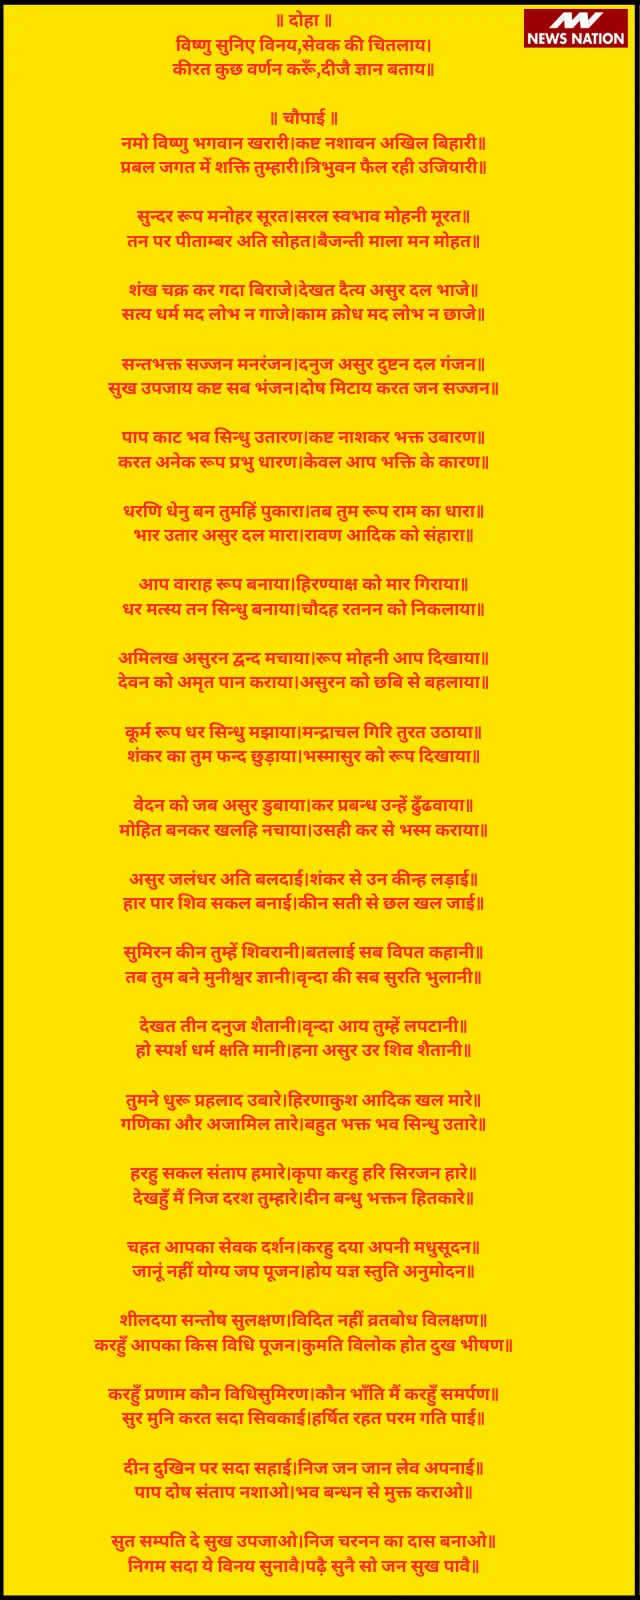 ॥ दोहा ॥
NEWS NATION
विष्णु सुनिए विनय,सेवक की चितलाय।
कीरत कुछ वर्णन करूँ,दीजै ज्ञान बताय॥
॥ चौपाई ॥
नमो विष्णु भगवान खरारी।कष्ट नशावन अखिल बिहारी॥
प्रबल जगत में शक्ति तुम्हारी।त्रिभुवन फैल रही उजियारी॥
सुन्दर रूप मनोहर सूरत।सरल स्वभाव मोहनी मूरत॥
तन पर पीताम्बर अति सोहत।बैजन्ती माला मन मोहत॥
शंख चक्र कर गदा बिराजे।देखत दैत्य असुर दल भाजे॥
सत्य धर्म मद लोभ न गाजे।काम क्रोध मद लोभ न छाजे॥
सन्तभक्त सज्जन मनरंजन।दनुज असुर दुष्टन दल गंजन॥
सुख उपजाय कष्ट सब भंजन।दोष मिटाय करत जन सज्जन॥
पाप काट भव सिन्धु उतारण।कष्ट नाशकर भक्त उबारण॥
करत अनेक रूप प्रभु धारण।केवल आप भक्ति के कारण॥
धरणि धेनु बन तुमहिं पुकारा।तब तुम रूप राम का धारा॥
भार उतार असुर दल मारा।रावण आदिक को संहारा॥
आप वाराह रूप बनाया।हिरण्याक्ष को मार गिराया॥
धर मत्स्य तन सिन्धु बनाया।चौदह रतनन को निकलाया॥
अमिलख असुरन द्वन्द मचाया।रूप मोहनी आप दिखाया॥
देवन को अमृत पान कराया।असुरन को छबि से बहलाया॥
कूर्म रूप धर सिन्धु मझाया।मन्द्राचल गिरि तुरत उठाया॥
शंकर का तुम फन्द छुड़ाया।भस्मासुर को रूप दिखाया॥
वेदन को जब असुर डुबाया।कर प्रबन्ध उन्हें ढुँढवाया॥
मोहित बनकर खलहि नचाया।उसही कर से भस्म कराया॥
असुर जलंधर अति बलदाई।शंकर से उन कीन्ह लड़ाई॥
हार पार शिव सकल बनाई।कीन सती से छल खल जाई॥
सुमिरन कीन तुम्हें शिवरानी।बतलाई सब विपत कहानी॥
तब तुम बने मुनीश्वर ज्ञानी।वृन्दा की सब सुरति भुलानी॥
देखत तीन दनुज शैतानी।वृन्दा आय तुम्हें लपटानी॥
हो स्पर्श धर्म क्षति मानी।हना असुर उर शिव शैतानी॥
तुमने धुरू प्रहलाद उबारे।हिरणाकुश आदिक खल मारे॥
गणिका और अजामिल तारे।बहुत भक्त भव सिन्धु उतारे॥
हरहु सकल संताप हमारे।कृपा करहु हरि सिरजन हारे॥
देखहुँ मैं निज दरश तुम्हारे।दीन बन्धु भक्तन हितकारे॥
चहत आपका सेवक दर्शन।करहु दया अपनी मधुसूदन॥
जानूं नहीं योग्य जप पूजन।होय यज्ञ स्तुति अनुमोदन॥
शीलदया सन्तोष सुलक्षण।विदित नहीं व्रतबोध विलक्षण॥
करहुँ आपका किस विधि पूजन।कुमति विलोक होत दुख भीषण॥
करहुँ प्रणाम कौन विधिसुमिरण।कौन भाँति मैं करहुँ समर्पण॥
सुर मुनि करत सदा सिवकाई।हर्षित रहत परम गति पाई॥
दीन दुखिन पर सदा सहाई।निज जन जान लेव अपनाई॥
पाप दोष संताप नशाओ।भव बन्धन से मुक्त कराओ॥
सुत सम्पति दे सुख उपजाओ।निज चरनन का दास बनाओ॥
निगम सदा ये विनय सुनावै।पढ़ै सुनै सो जन सुख पावै॥